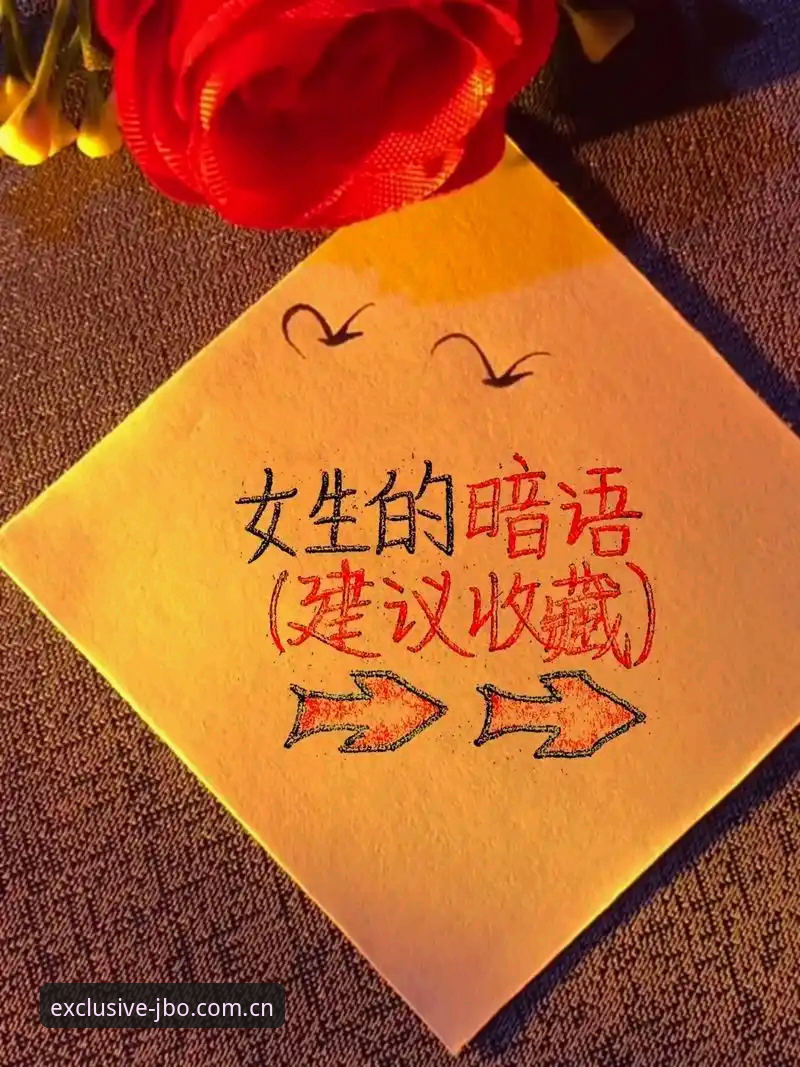 女生的暗语
(建议收藏)
exclusive-jbo.com.cn